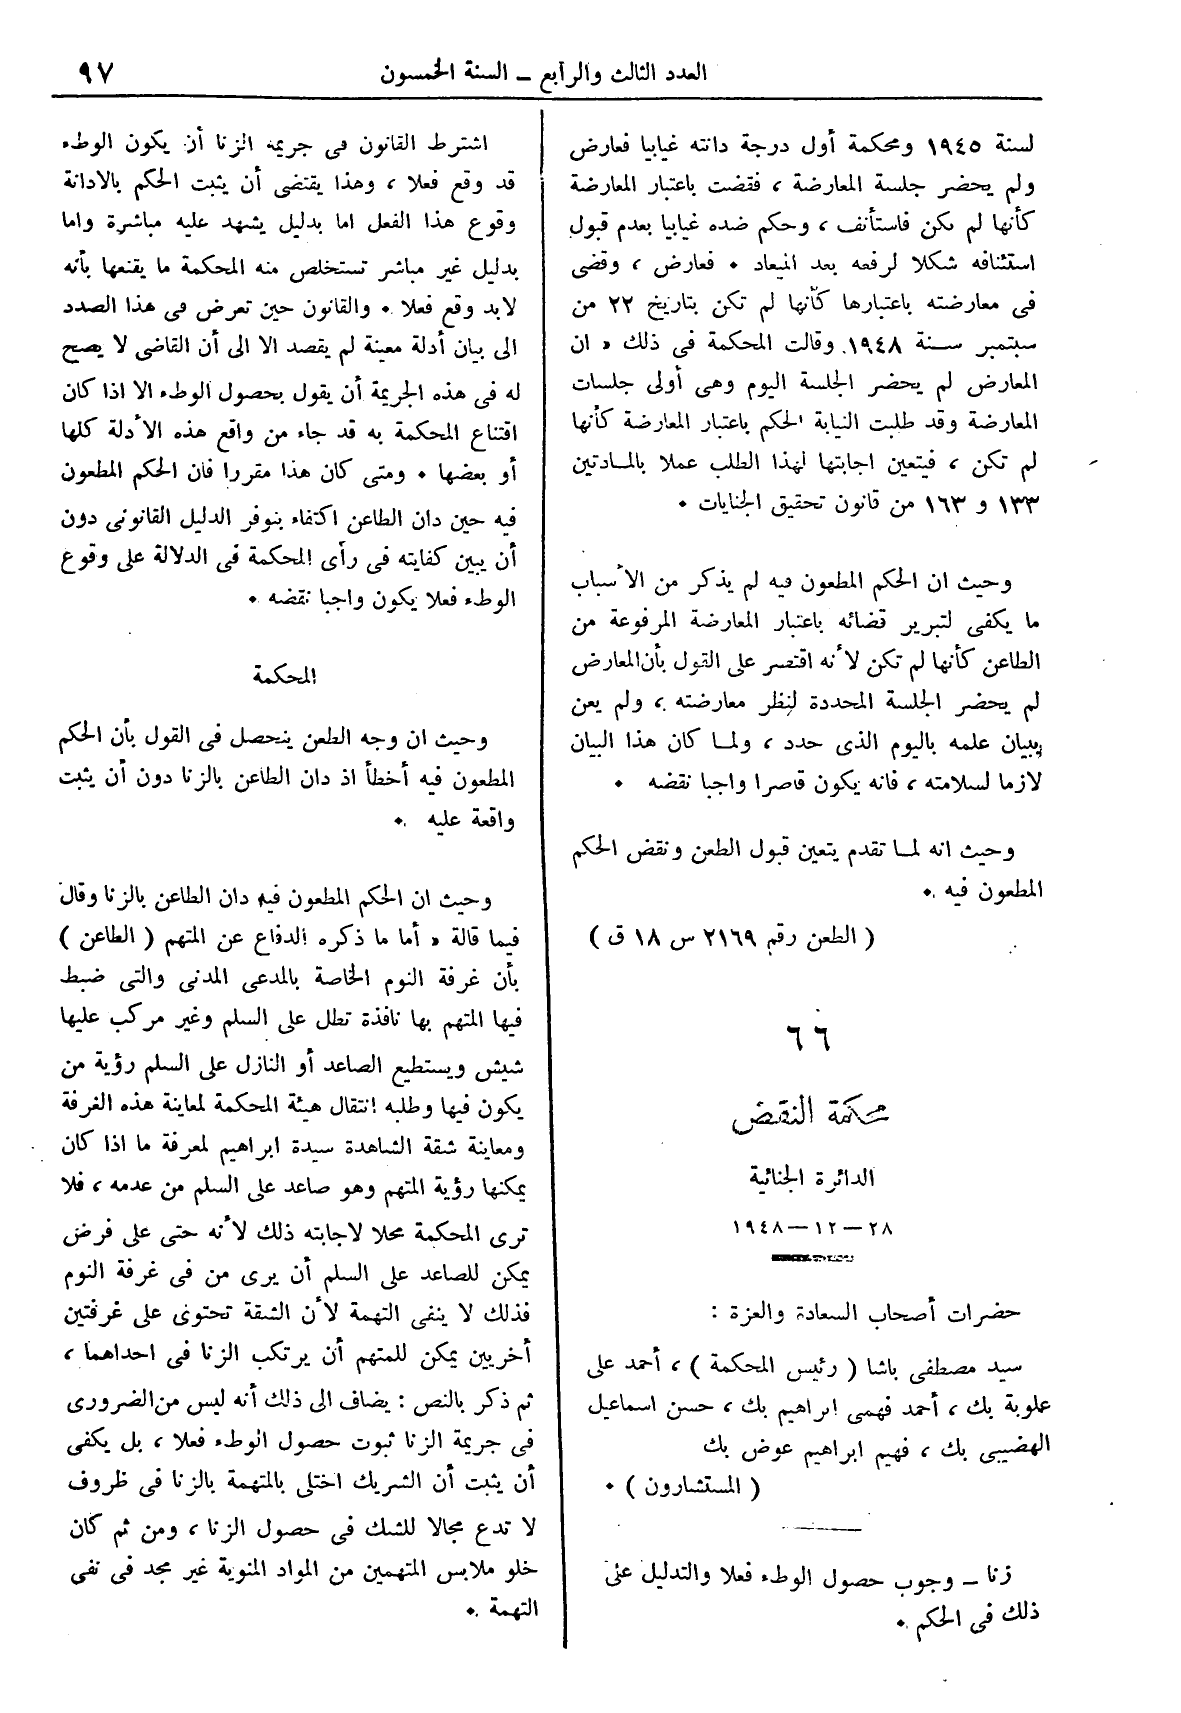 العدد الثالث والرابع ــ السنة الخمسون
٩٧
لسنة ١٩٤٥ ومحكمة أول درجة دانته غيابيا فعارض
ولم يحضر جلسة المعارضة ، فقضت باعتبار المعارضة
كأنها لم تكن فاستأنف ، وحكم ضده غيابيا بعدم قبول
استئنافه شكلا لرفعه بعد الميعاد • فعارض ، وقضى
فى معارضته باعتبارها كأنها لم تكن بتاريخ ٢٢ من
سبتمبر سـنة ١٩٤٨. وقالت المحكمة فى ذلك « ان
المعارض لم يحضر الجلسة اليوم وهى أولى جلسات
المعارضة وقد طلبت النيابة الحكم باعتبار المعارضة كأنها
لم تكن ، فيتعين اجابتها لهذا الطلب عملا بالمـادتين
١٣٣ و ١٦٣ من قانون تحقيق الجنايات •
وحيث ان الحكم المطعون فيه لم يذكر من الأسباب
ما يكفى لتبرير قضائه باعتبار المعارضة المرفوعة من
الطاعن كأنها لم تكن لأنه اقتصر على القول بأن المعارض
لم يحضر الجلسة المحددة لنظر معارضته ، ولم يعن
ببيان علمه باليوم الذى حدد ، ولمـا كان هذا البيان
لازما لسلامته ، فانه يكون قاصرا واجبا نقضه •
وحيث انه لمـا تقدم يتعين قبول الطعن ونقض الحكم
المطعون فيه •
( الطعن رقم ٢١٦٩ س ١٨ ق )
٦٦
محكمة النقض
الدائرة الجنائية
٢٨ — ١٢ — ١٩٤٨
حضرات أصحاب السعادة والعزة :
سيد مصطفى باشا ( رئيس المحكمة ) ، أحمد على
علوبة بك ، أحمد فهمى ابراهيم بك ، حسن اسماعيل
الهضيبى بك ، فهيم ابراهيم عوض بك
( المستشارون ) •
زنا ــ وجوب حصول الوطء فعلا والتدليل على
ذلك فى الحكم •
اشترط القانون فى جريمة الزنا أن يكون الوطء
قد وقع فعلا ، وهذا يقتضى أن يثبت الحكم بالادانة
وقوع هذا الفعل اما بدليل يشهد عليه مباشرة واما
بدليل غير مباشر تستخلص منه المحكمة ما يقنعها بأنه
لابد وقع فعلا • والقانون حين تعرض فى هذا الصدد
الى بيان أدلة معينة لم يقصد الا الى أن القاضى لا يصح
له فى هذه الجريمة أن يقول بحصول الوطء الا اذا كان
اقتناع المحكمة به قد جاء من واقع هذه الأدلة كلها
أو بعضها • ومتى كان هذا مقررا فان الحكم المطعون
فيه حين دان الطاعن اكتفاء بتوفر الدليل القانونى دون
أن يبين كفايته فى رأى المحكمة فى الدلالة على وقوع
الوطء فعلا يكون واجبا نقضه •
المحكمة
وحيث ان وجه الطعن ينحصل فى القول بأن الحكم
المطعون فيه أخطأ اذ دان الطاعن بالزنا دون أن يثبت
واقعة عليه •
وحيث ان الحكم المطعون فيه دان الطاعن بالزنا وقال
فيما قالة « أما ما ذكره الدفاع عن المتهم ( الطاعن )
بأن غرفة النوم الخاصة بالمدعى المدنى والتى ضبط
فيها المتهم بها نافذة تطل على السلم وغير مركب عليها
شيش ويستطيع الصاعد أو النازل على السلم رؤية من
يكون فيها وطلبه انتقال هيئة المحكمة لمعاينة هذه الغرفة
ومعاينة شقة الشاهدة سيدة ابراهيم لمعرفة ما اذا كان
يمكنها رؤية المتهم وهو صاعد على السلم من عدمه ، فلا
ترى المحكمة محلا لاجابته ذلك لأنه حتى على فرض
يمكن للصاعد على السلم أن يرى من فى غرفة النوم
فذلك لا ينفى التهمة لأن الشقة تحتوى على غرفتين
أخريين يمكن للمتهم أن يرتكب الزنا فى احداهما ،
ثم ذكر بالنص : يضاف الى ذلك أنه ليس من الضرورى
فى جريمة الزنا ثبوت حصول الوطء فعلا ، بل يكفى
أن يثبت أن الشريك اختلى بالمتهمة بالزنا فى ظروف
لا تدع مجالا للشك فى حصول الزنا ، ومن ثم كان
خلو ملابس المتهمين من المواد المنوية غير مجد فى نفى
التهمة •